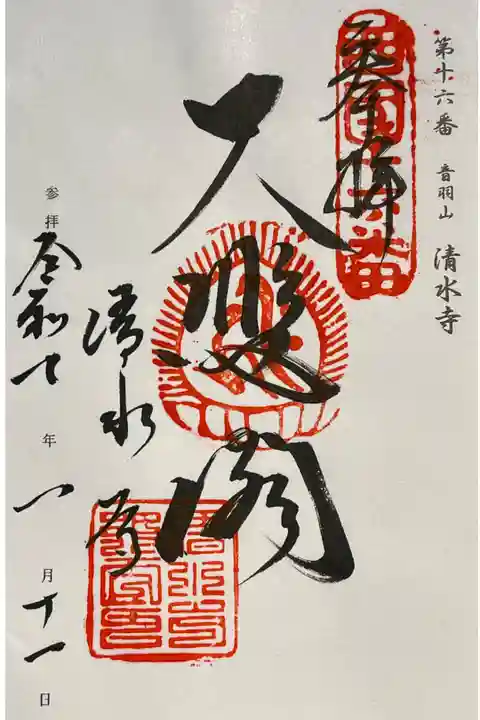 第十六番 音羽山 清水寺
奉拝
大悲閣
清水寺
参拝 令和七年一月十一日